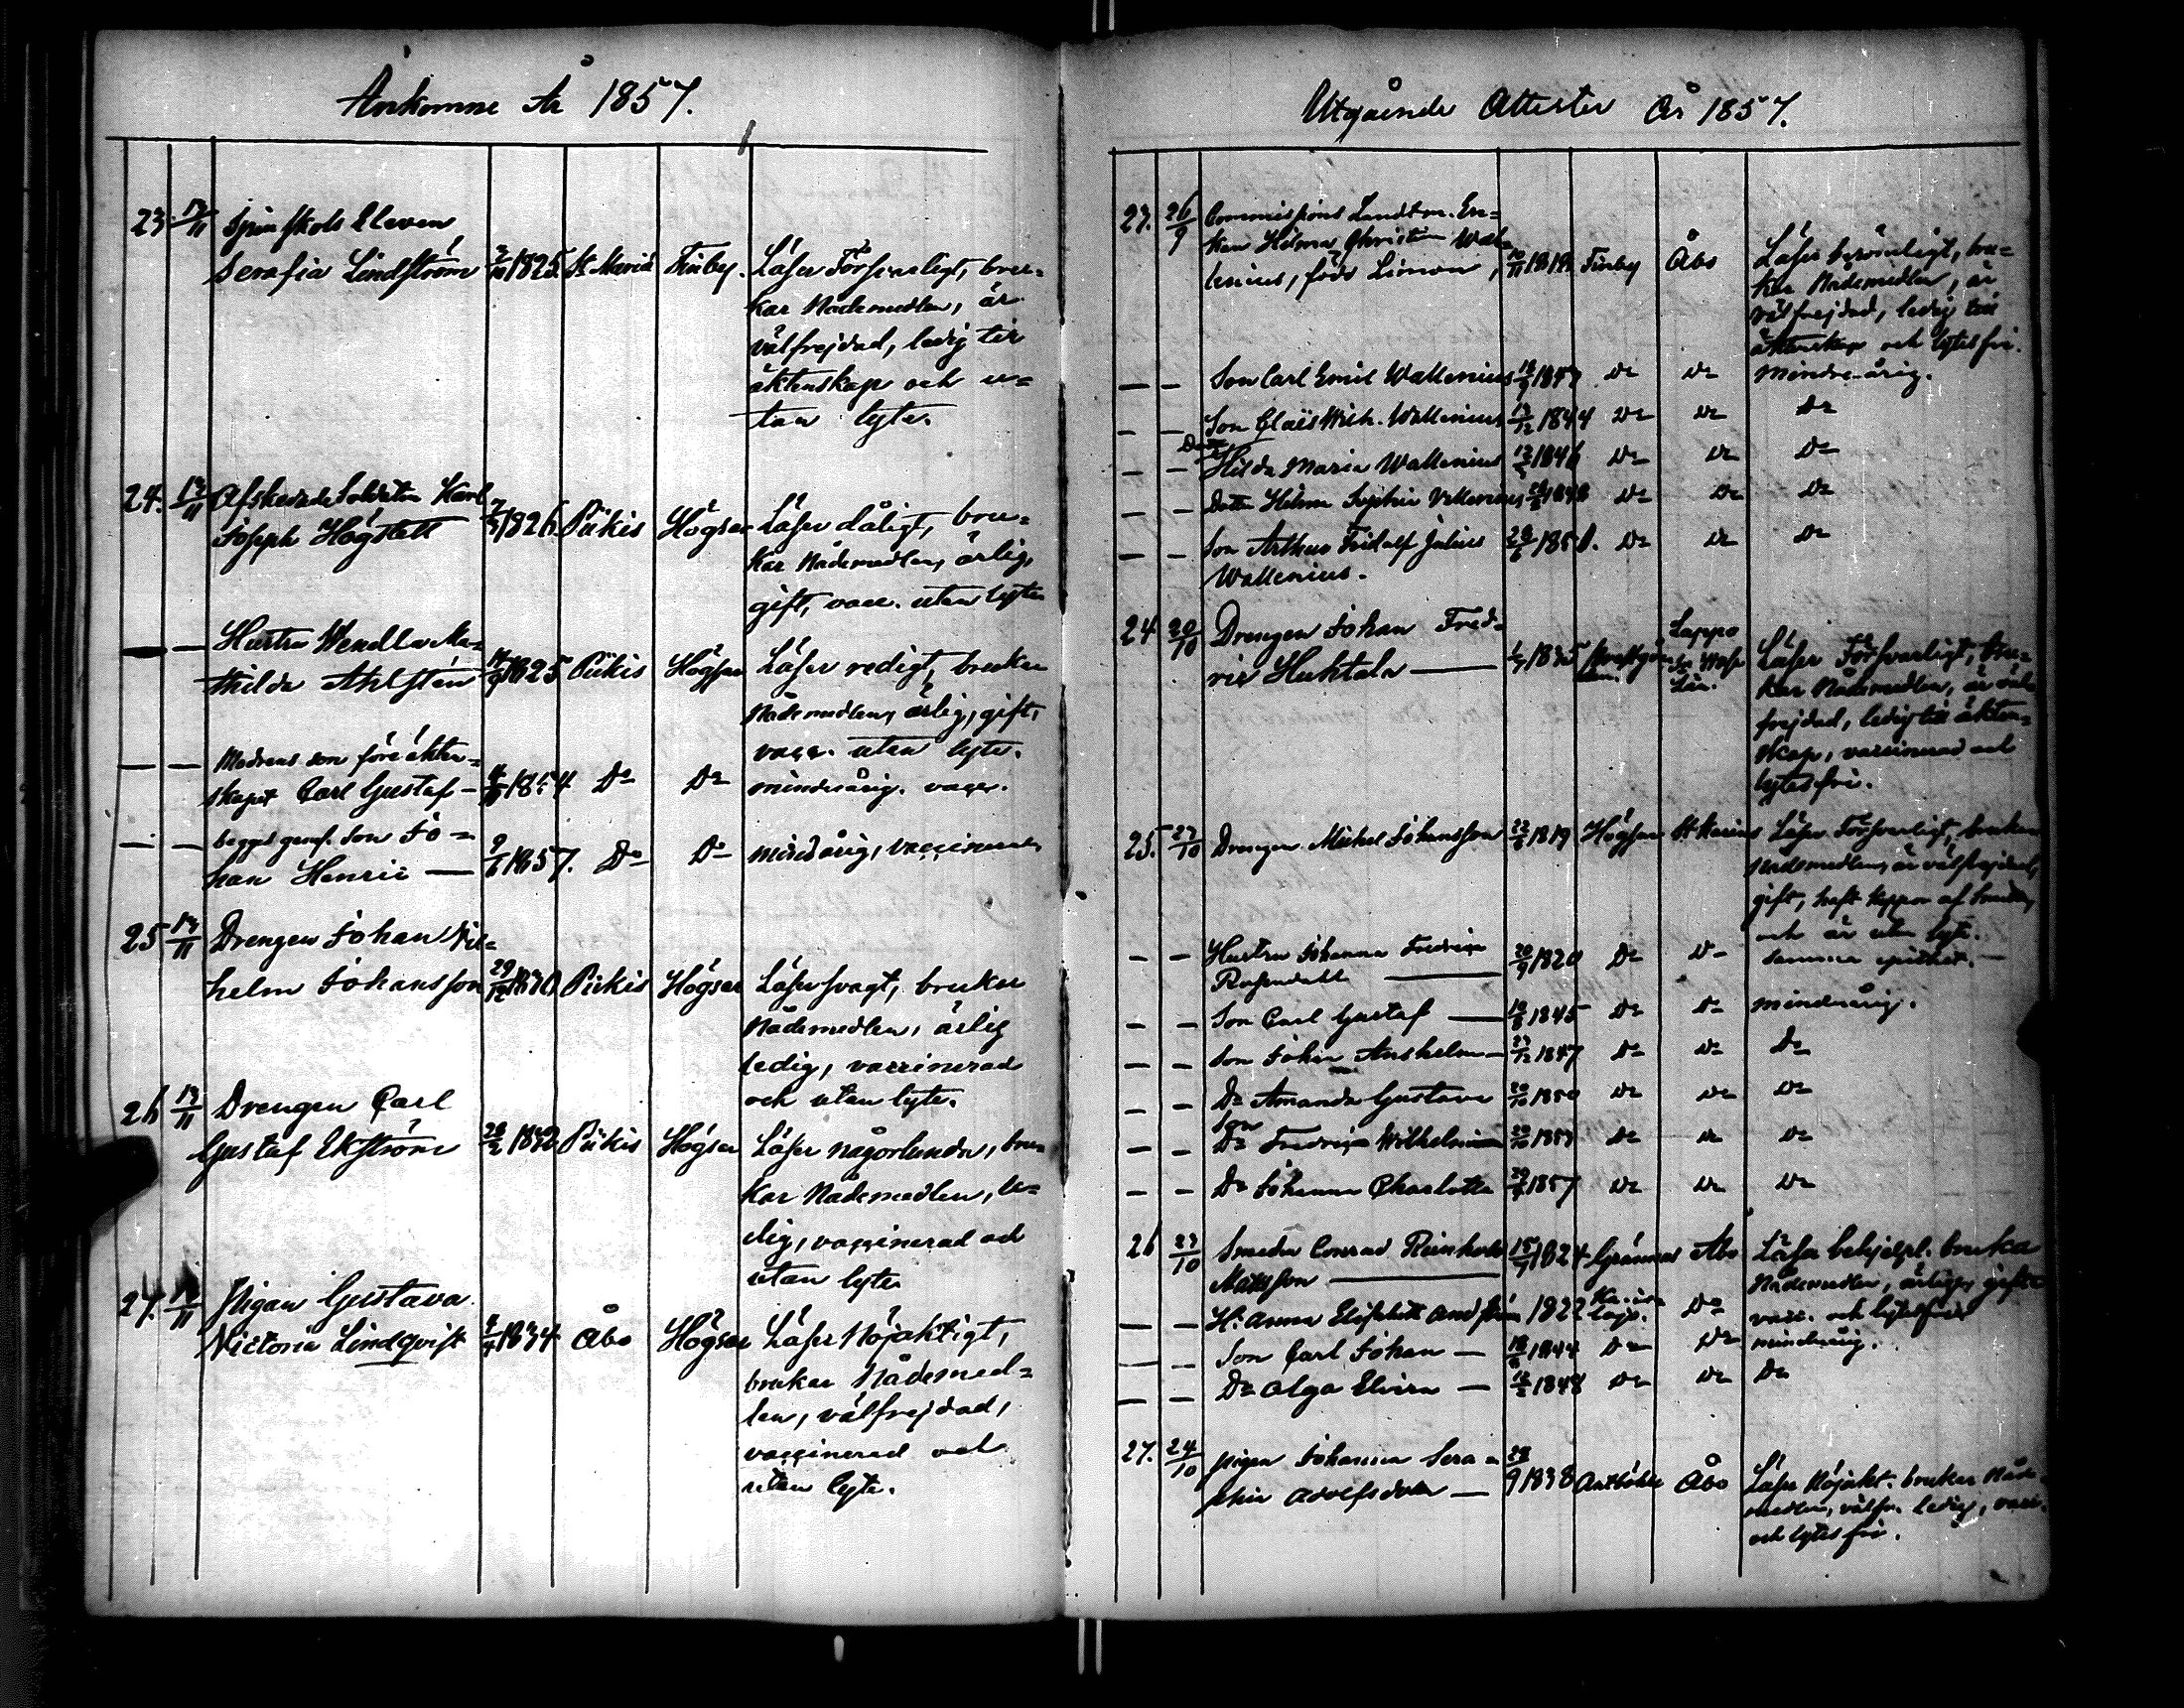 Ankomne År 1857.
23. 13/11 Spinskols Eleven
Serafia Lindström 2/10 1825. St Marie Finby. Läser Försvarligt, bru-
kar Nådemedlen, är
välfrejdad, ledig till
äktenskap och u-
tan lyte.
24. 13/11 Afskedade Soldaten Karl
Joseph Högstett 1826. Pikis Högsar Läser dåligt, bru-
kar Nådemedlen, ärlig,
gift, vacc. utan lyte
— — Hustru Wendla Ma-
thilda Ahlstén 1825 Pikis Högsar Läser redigt, brukar
Nådemedlen, ärlig, gift,
vacc. utan lyte.
— — Modrens son före äkten-
skapet Carl Gustaf — 1854 Do Do minderårig. vacc.
— — begges gems. son Jo-
han Henric — 1857. Do Do minderårig, vaccinerad
25 13/11 Drengen Johan Vil-
helm Johansson 29/12 1830 Pikis Högsar Läser svagt, brukar
Nådemedlen, ärlig
ledig, vaccinerad
och utan lyte.
26 13/11 Drengen Carl
Gustaf Ekström 28/2 Pikis Högsar Läser någorlunda, bru-
kar Nådemedlen, le-
dig, vaccinerad och
utan lyte
27. Pigan Gustava
Victoria Lindqvist 1834 Åbo Högsar Läser Nöjaktigt,
brukar Nådemed-
len, välfrejdad,
vaccinerad och
utan lyte.
Utgående Attester År 1857.
23. 26/9 Commissions Landtm. En-
kan Helma Christin Wal-
lenius, född Limon, Finby Åbo Läser berömligt, bru-
kar Nådemedlen, är
välfrejdad, ledig till
äktenskap och lytesfri.
— — Son Carl Emil Wallenius Do Do Mindre-årig.
— — Son Claës Wilh. Wallenius 1844 Do Do Do
— — Hilda Maria Wallenius 1846 Do Do Do
— — Dotter Helma Sophia Wallenius Do Do Do
— — Son Arthur Fridolf Julius 1850. Do Do Do
Wallenius.
24 20/10 Drengen Johan Fred-
ric Huhtala — 1835 Lappo
Läser Försvarligt, bru-
kar Nådemedlen, är väl-
frejdad, ledig till äkten-
skap, vaccinerad och
lytesfri.
25. 23/10 Drengen Michel Johansson 1819 Högsar St Karins Läser Försvarligt, brukar
Nådemedlen, är välfrejdad,
gift, haft koppor
och är utan lyte.
— — Hustru Johanna Fredrica 20/9 1820 Do Do Samma
— — Son Carl Gustaf — 1845 Do Do minderårig.
— — Son Johan Anshelm — 1847 Do Do Do
— — Do Amanda Gustava 20/10 1850 Do Do Do
Son
— — Do Fredric Wilhelm Do Do Do
— — Do Johanna Charlotta 1857 Do Do Do
26 23/10 Smeden Conrad Reinhold 1824 Åbo Läser behjelpl. brukar
Matsson — Nådemedlen, ärlig, gift
— — H: Anna Elisabeth 1822 Do vacc. och lytesfri
— — Son Carl Johan — 1844 Do Do minderårig.
— — Do Olga Elvira — 1848 Do Do Do
27. 24/10 Pigan Johanna Sera-
phia Adolfsdotter — 1838 Åbo Läser Nöjakt. brukar Nåde-
medlen, välfr. ledig, vacc.
och lytesfri.